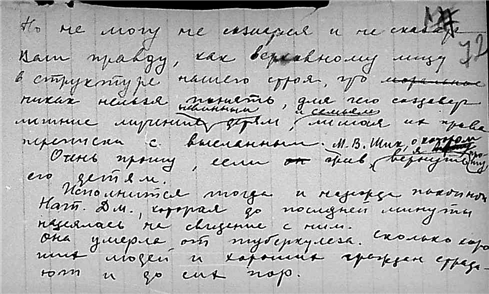 Но не могу не сознаться и не сказать
Вам правду, как верховному лицу
в структуре нашего строя, что морально
никак нельзя понять, для чего создавать
лишние мучения невинным детям и семьям, лишая их права
переписки с высланным. М. В. Шик, о котором
Очень прошу, если он жив, верните
его детям.
Исполнится тогда и надежда покойной
Нат. Дм., которая до последней минуты
надеялась на свидание с ним.
Она умерла от туберкулеза. Сколько хоро
ших людей и хороших граждан страда-
ют и до сих пор.
72